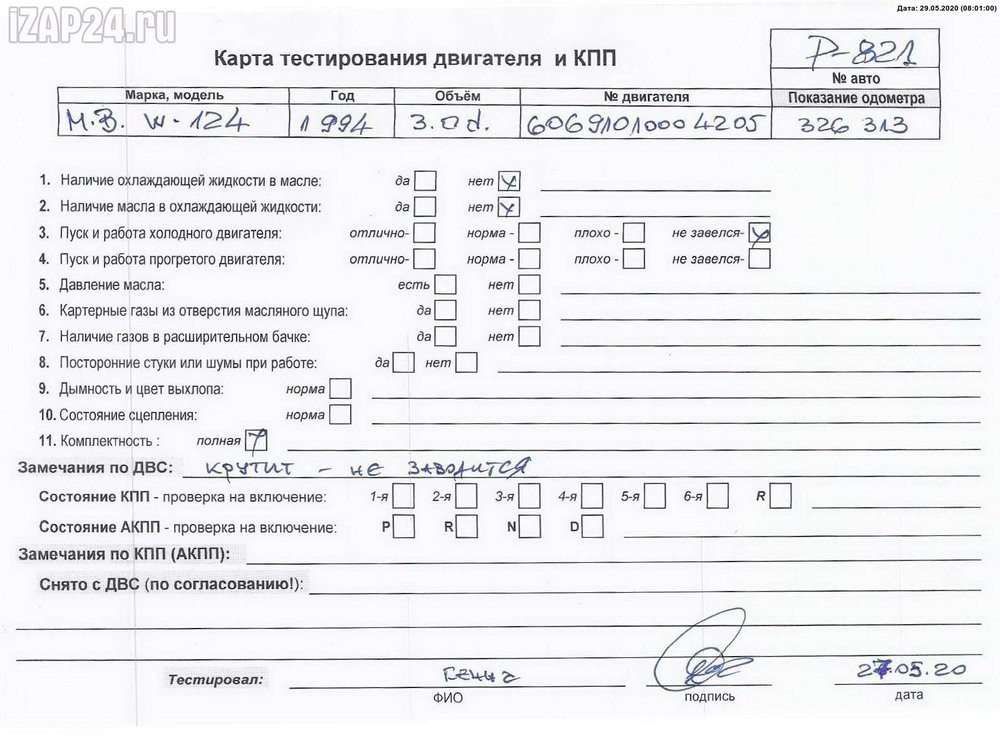 iZAP24.ru
Дата: 29.05.2020 (08:01:00)
Карта тестирования двигателя и КПП
P-821
№ авто
Марка, модель Год Объём № двигателя Показание одометра
M.B. W-124 1994 3.0d. 60691010004205 326 313
1. Наличие охлаждающей жидкости в масле: да нет
2. Наличие масла в охлаждающей жидкости: да нет
3. Пуск и работа холодного двигателя: отлично- норма - плохо - не завелся-
4. Пуск и работа прогретого двигателя: отлично- норма - плохо - не завелся-
5. Давление масла: есть нет
6. Картерные газы из отверстия масляного щупа: да нет
7. Наличие газов в расширительном бачке: да нет
8. Посторонние стуки или шумы при работе: да нет
9. Дымность и цвет выхлопа: норма
10. Состояние сцепления: норма
11. Комплектность : полная
Замечания по ДВС: крутит - не заводится
Состояние КПП - проверка на включение: 1-я 2-я 3-я 4-я 5-я 6-я R
Состояние АКПП - проверка на включение: P R N D
Замечания по КПП (АКПП):
Снято с ДВС (по согласованию!):
Тестировал: 27.05.20
ФИО подпись дата